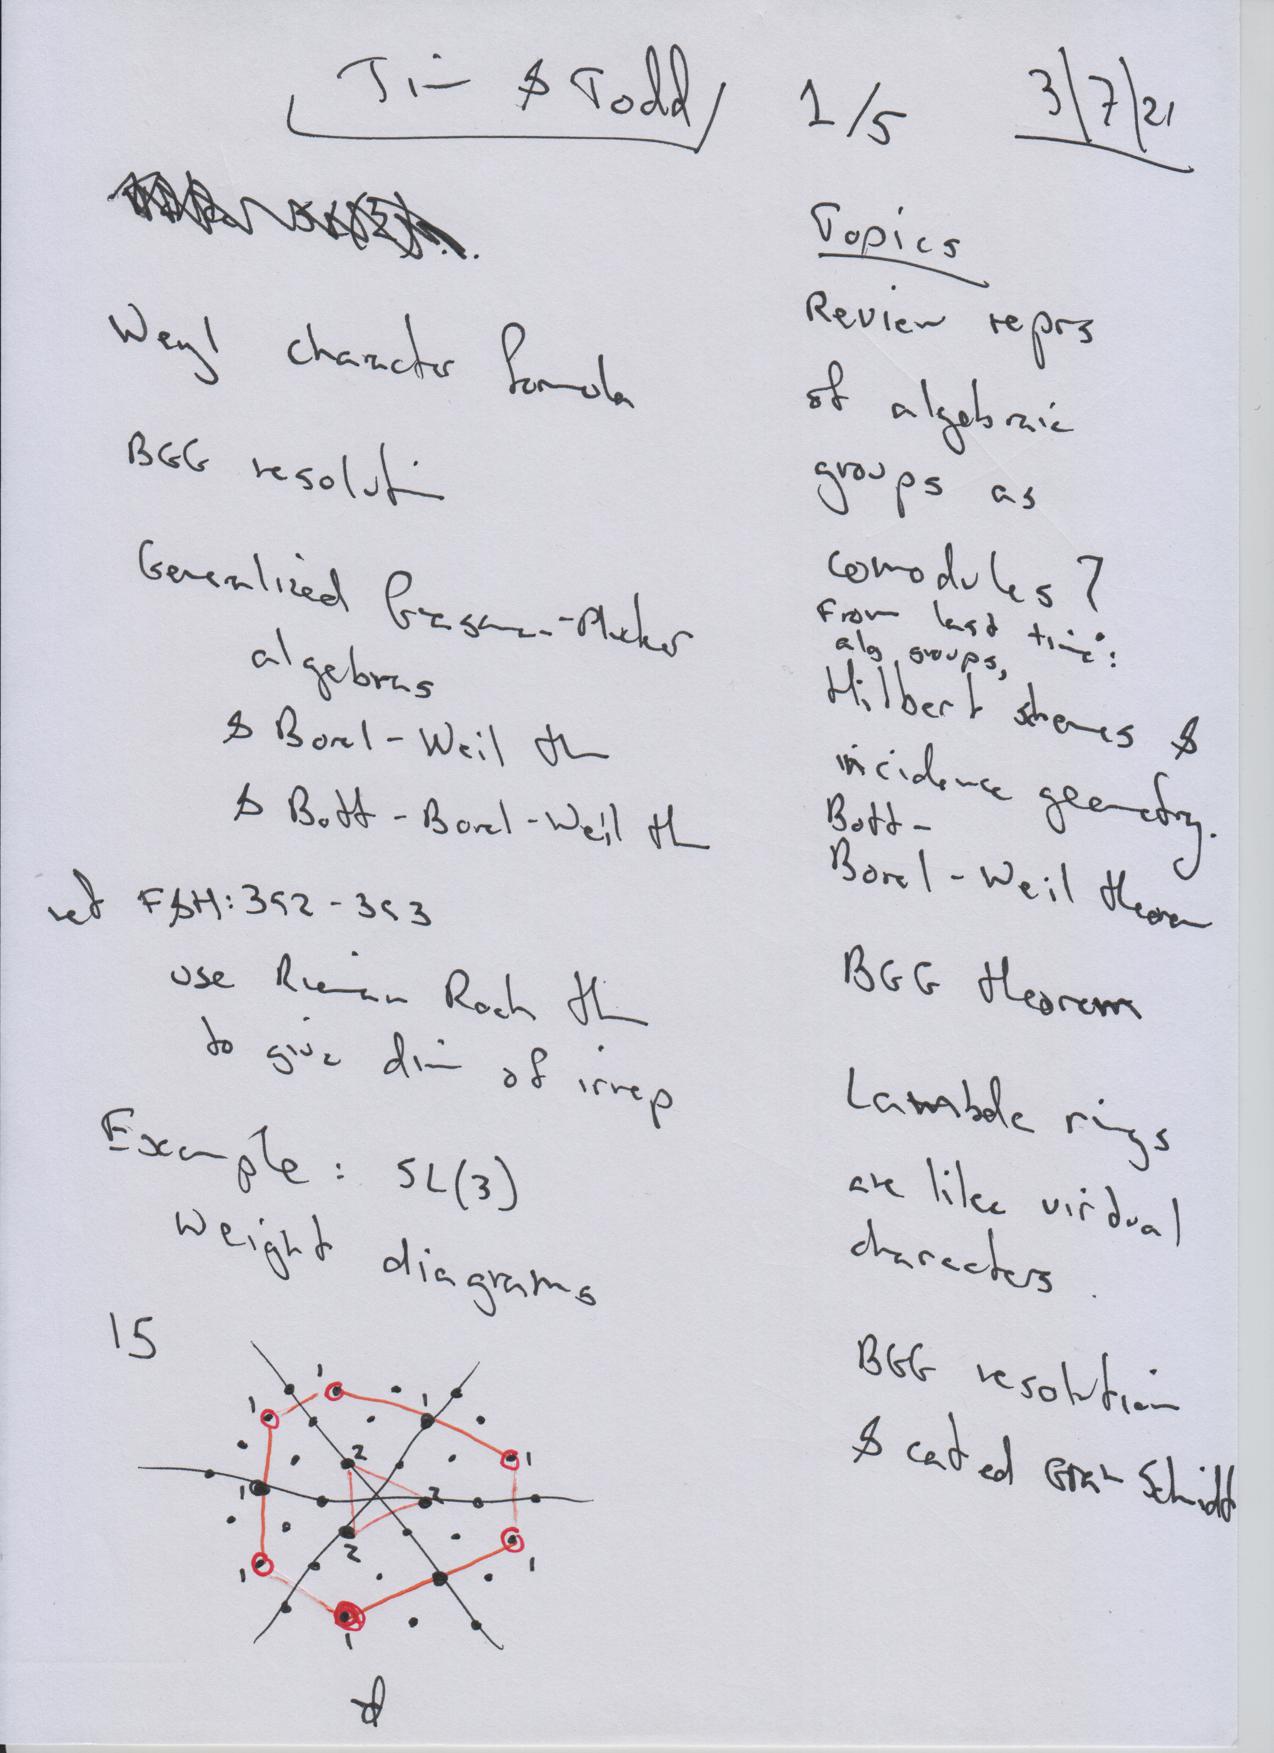 Jim & Todd 1/5 3/7/21
Weyl character formula
BGG resolution
Generalized Grassmann-Plucker
algebras
& Borel-Weil th
& Bott-Borel-Weil th
ref F&H: 392-393
use Riemann Roch th
to give dim of irrep
Example: SL(3)
weight diagrams
15
1
1
1
2
1
1
2
2
1
1
1
Topics
Review reprs
of algebraic
groups as
comodules?
From last time:
alg groups,
Hilbert schemes &
incidence geometry.
Bott-
Borel-Weil theorem
BGG theorem
Lambda rings
are like virtual
characters.
BGG resolution
& cat ed Gram Schmidt